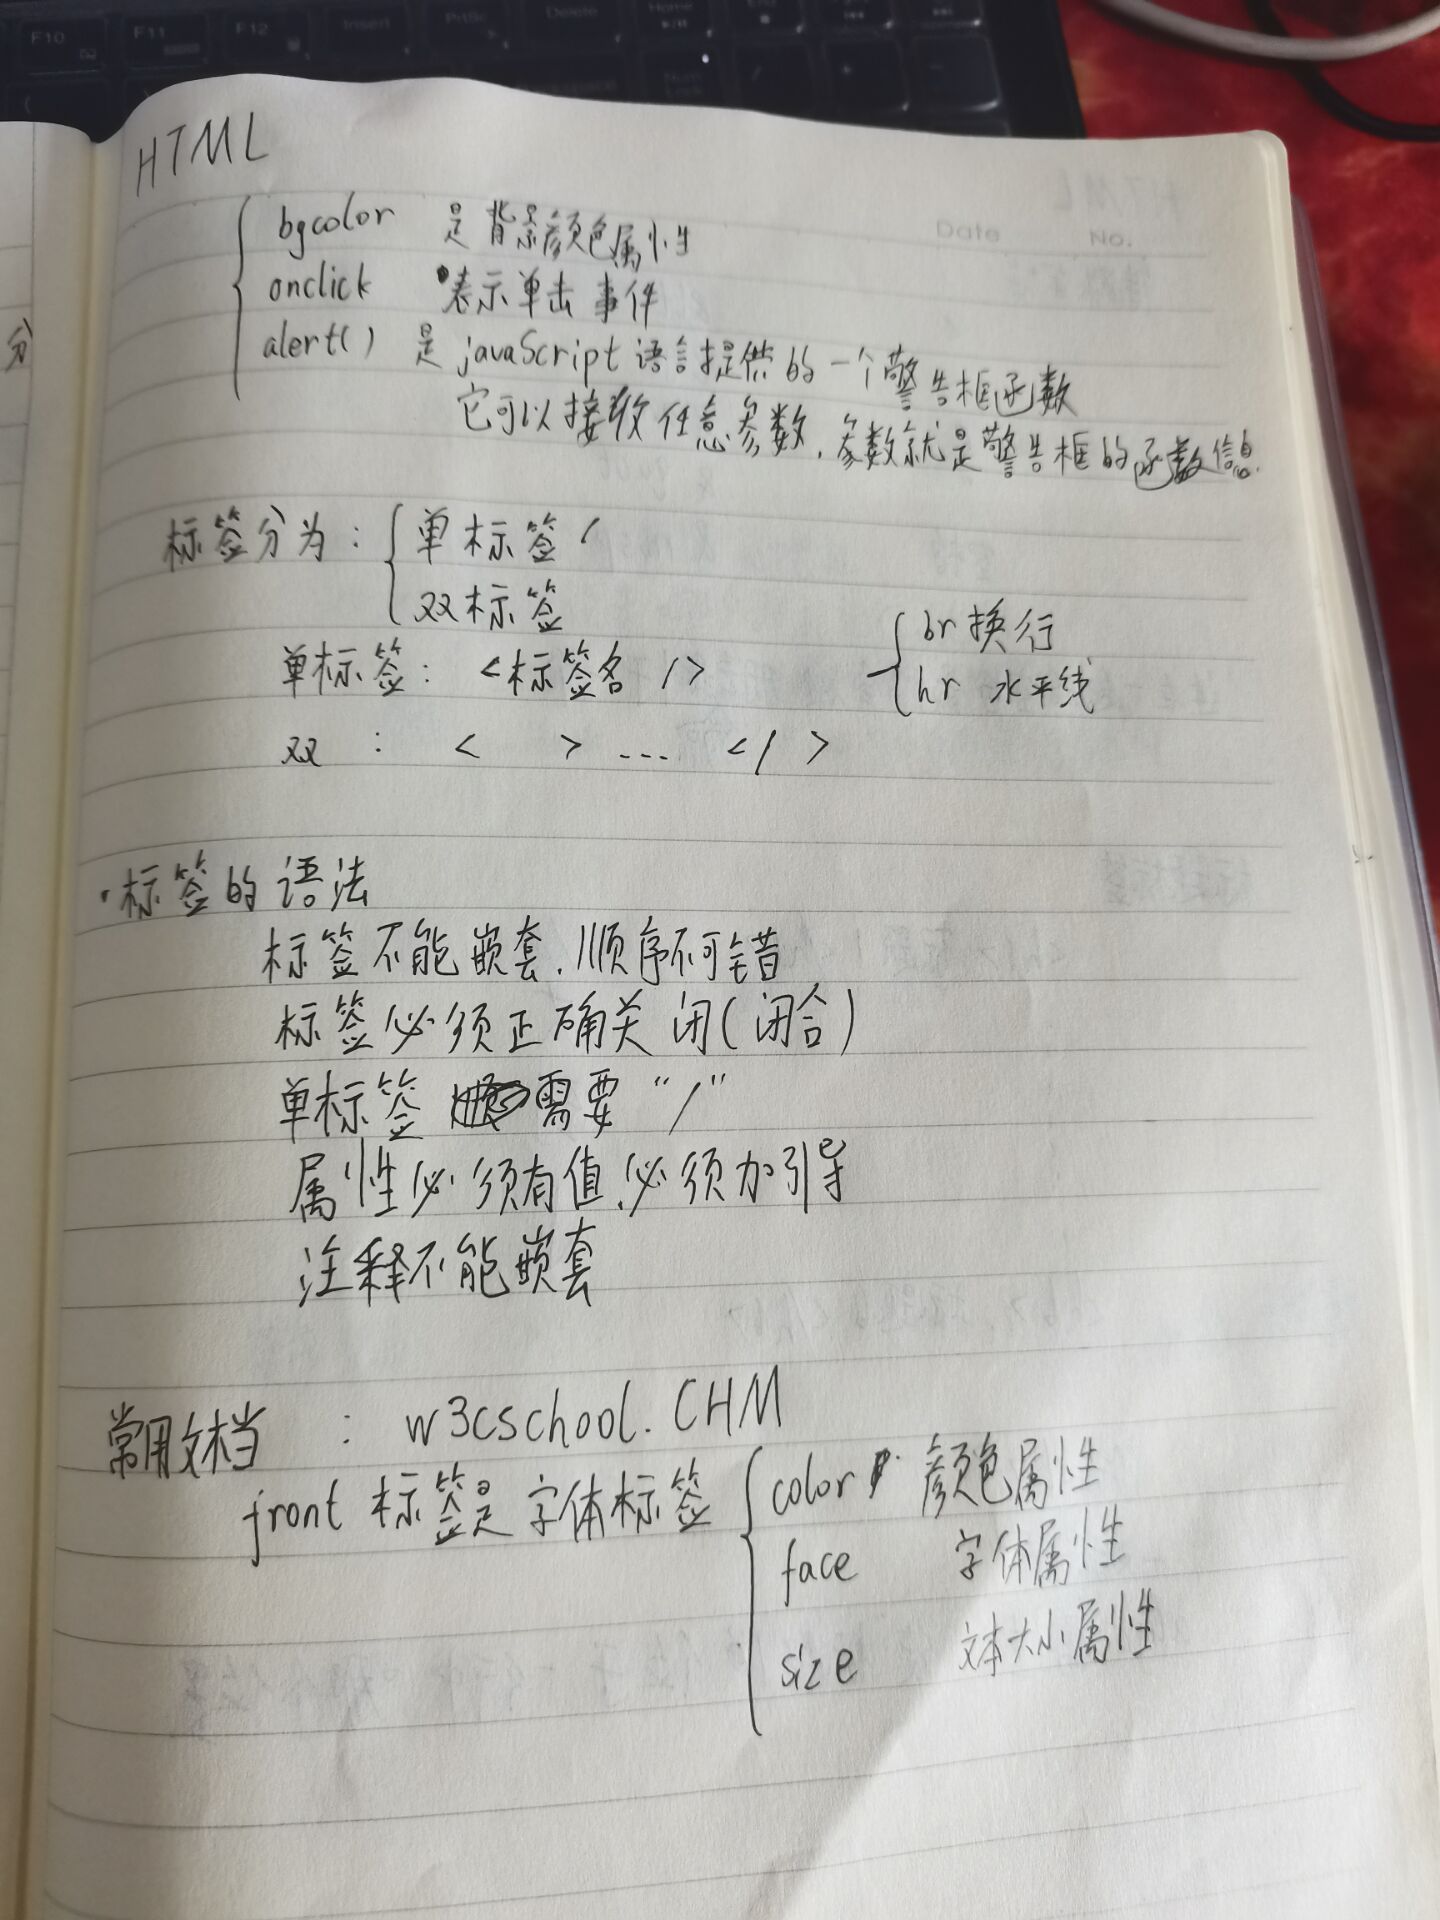 F10 F11 F12 Insert PrtSc Delete Home End
Date No.
HTML
bgcolor 是背景颜色属性
onclick 表示单击事件
alert() 是javaScript语言提供的一个警告框函数
它可以接收任意参数,参数就是警告框的函数信息.
分
标签分为: 单标签 /
双标签
br 换行
单标签: <标签名 />
hr 水平线
双 : < > ... </ >
·标签的语法
标签不能嵌套.顺序不可错
标签必须正确关闭(闭合)
单标签 需要“/”
属性必须有值,必须加引导
注释不能嵌套
常用文档 : w3cschool.CHM
front 标签是字体标签 color 颜色属性
face 字体属性
size 文本大小属性